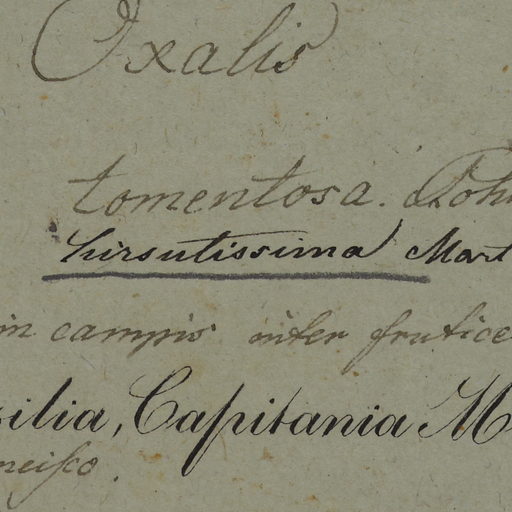 Oxalis
tomentosa. Pohl
hirsutissima Mart
in campis inter frutice
silia, Capitania M
nciſco.